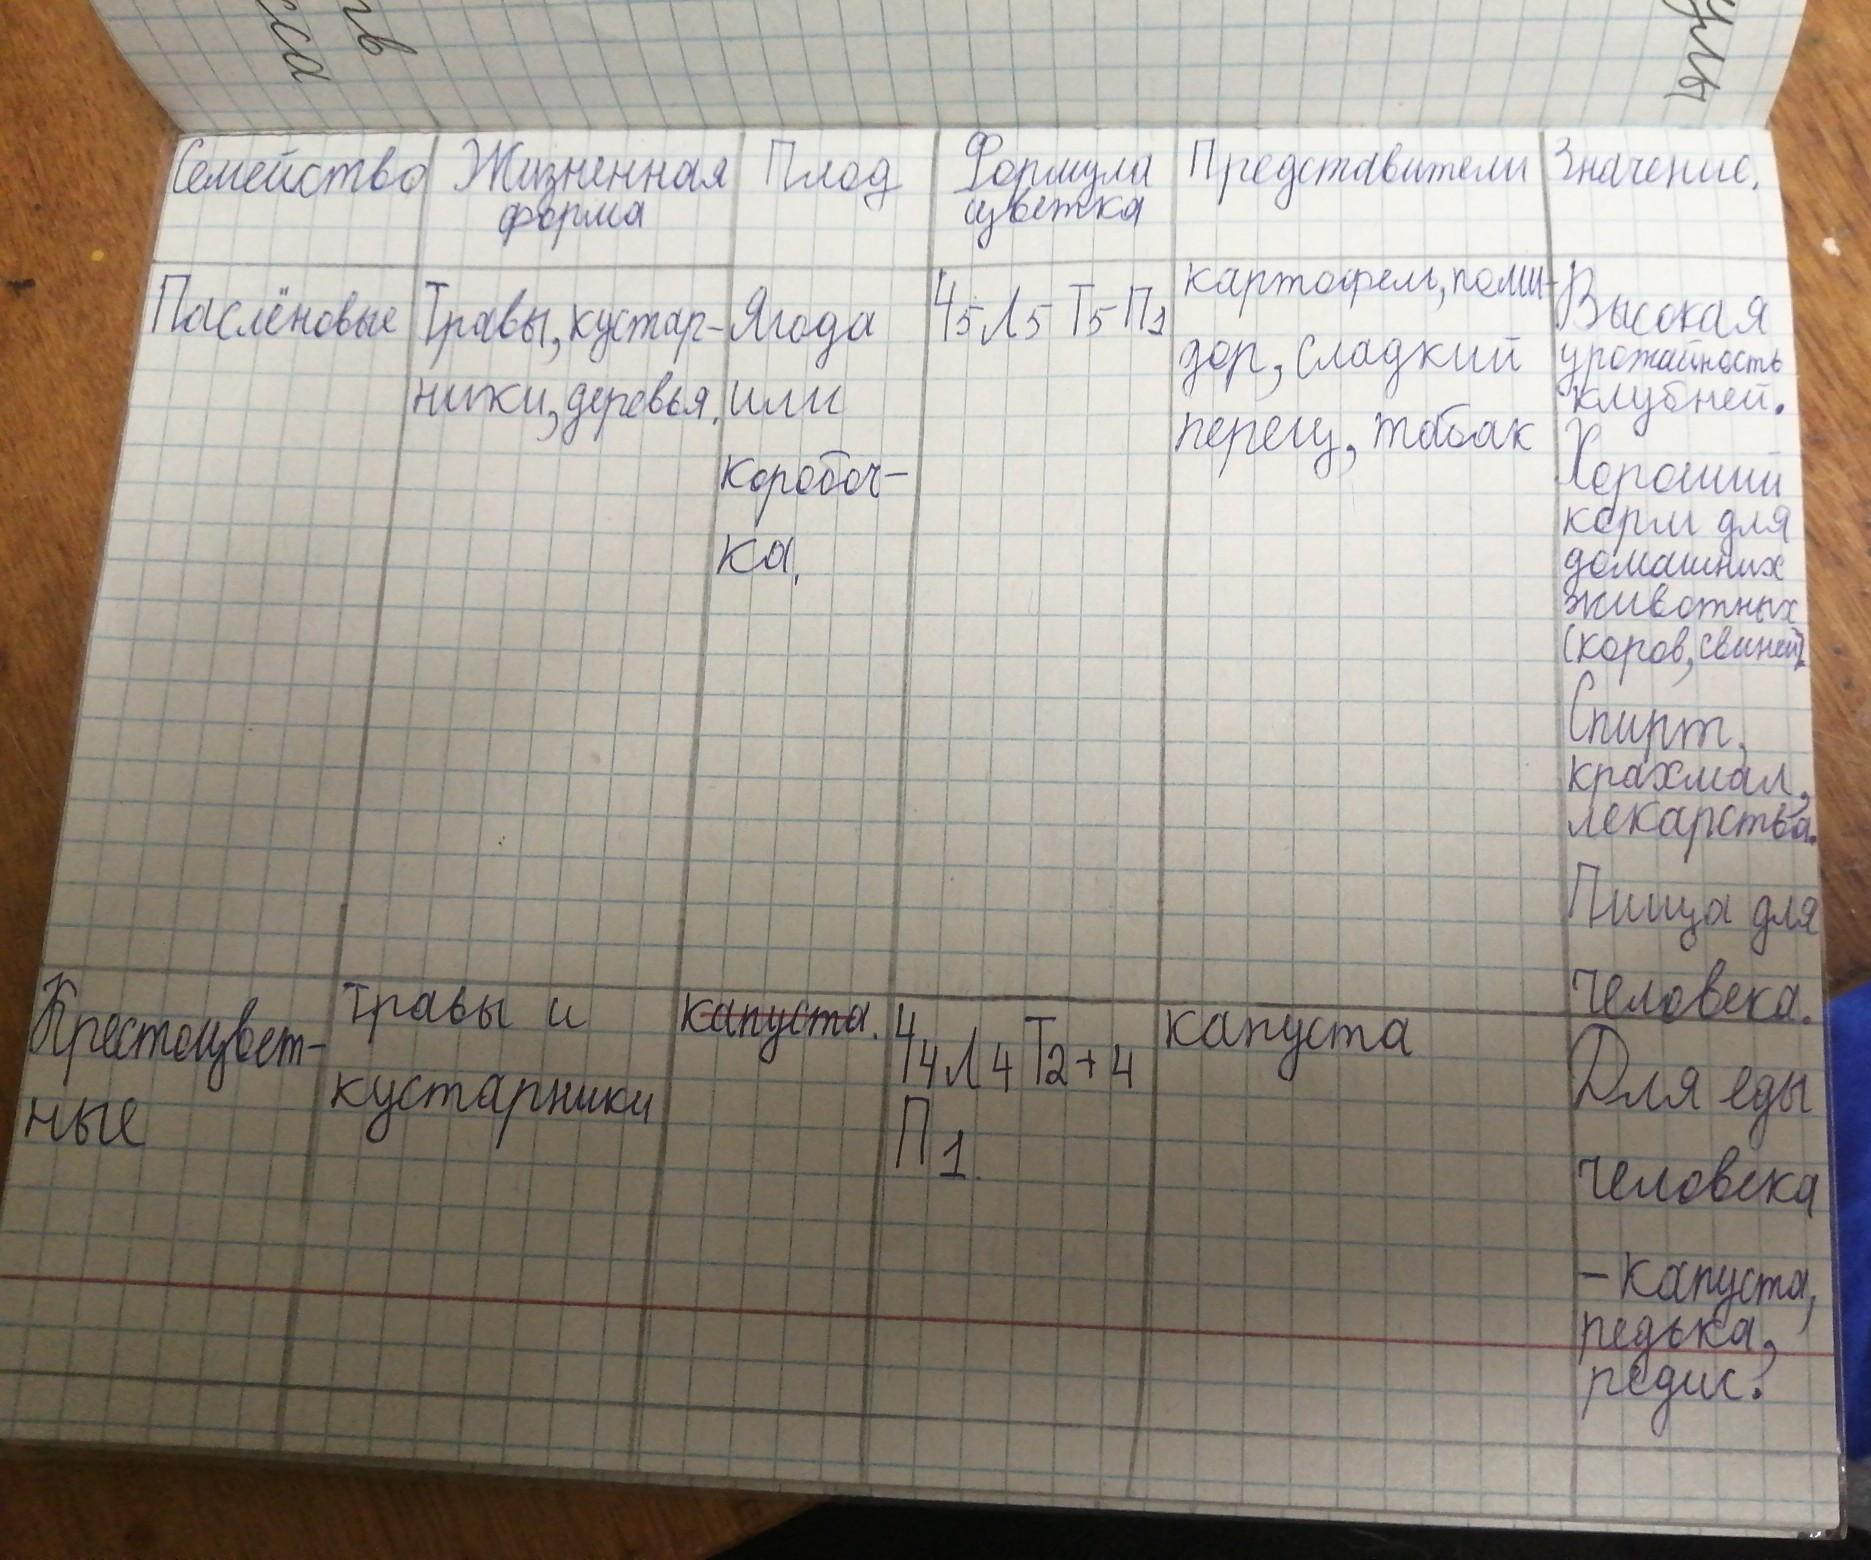 Семейство
Жизненная
форма
Плод
Формула
цветка
Представители
Значение.
Паслёновые
Травы, кустар-
ники, деревья.
Ягода
или
коробоч-
ка.
Ч5Л5Т5П1
картофель, поми-
дор, сладкий
перец, табак
Высокая
урожайность
клубней.
Хороший
корм для
домашних
животных
(коров, свиней)
Спирт,
крахмал,
лекарства.
Пища для
человека.
Крестоцвет-
ные
травы и
кустарники
капуста.
Ч4Л4Т2+4
П1.
капуста
Для еды
человека
- капуста,
редька,
редис.